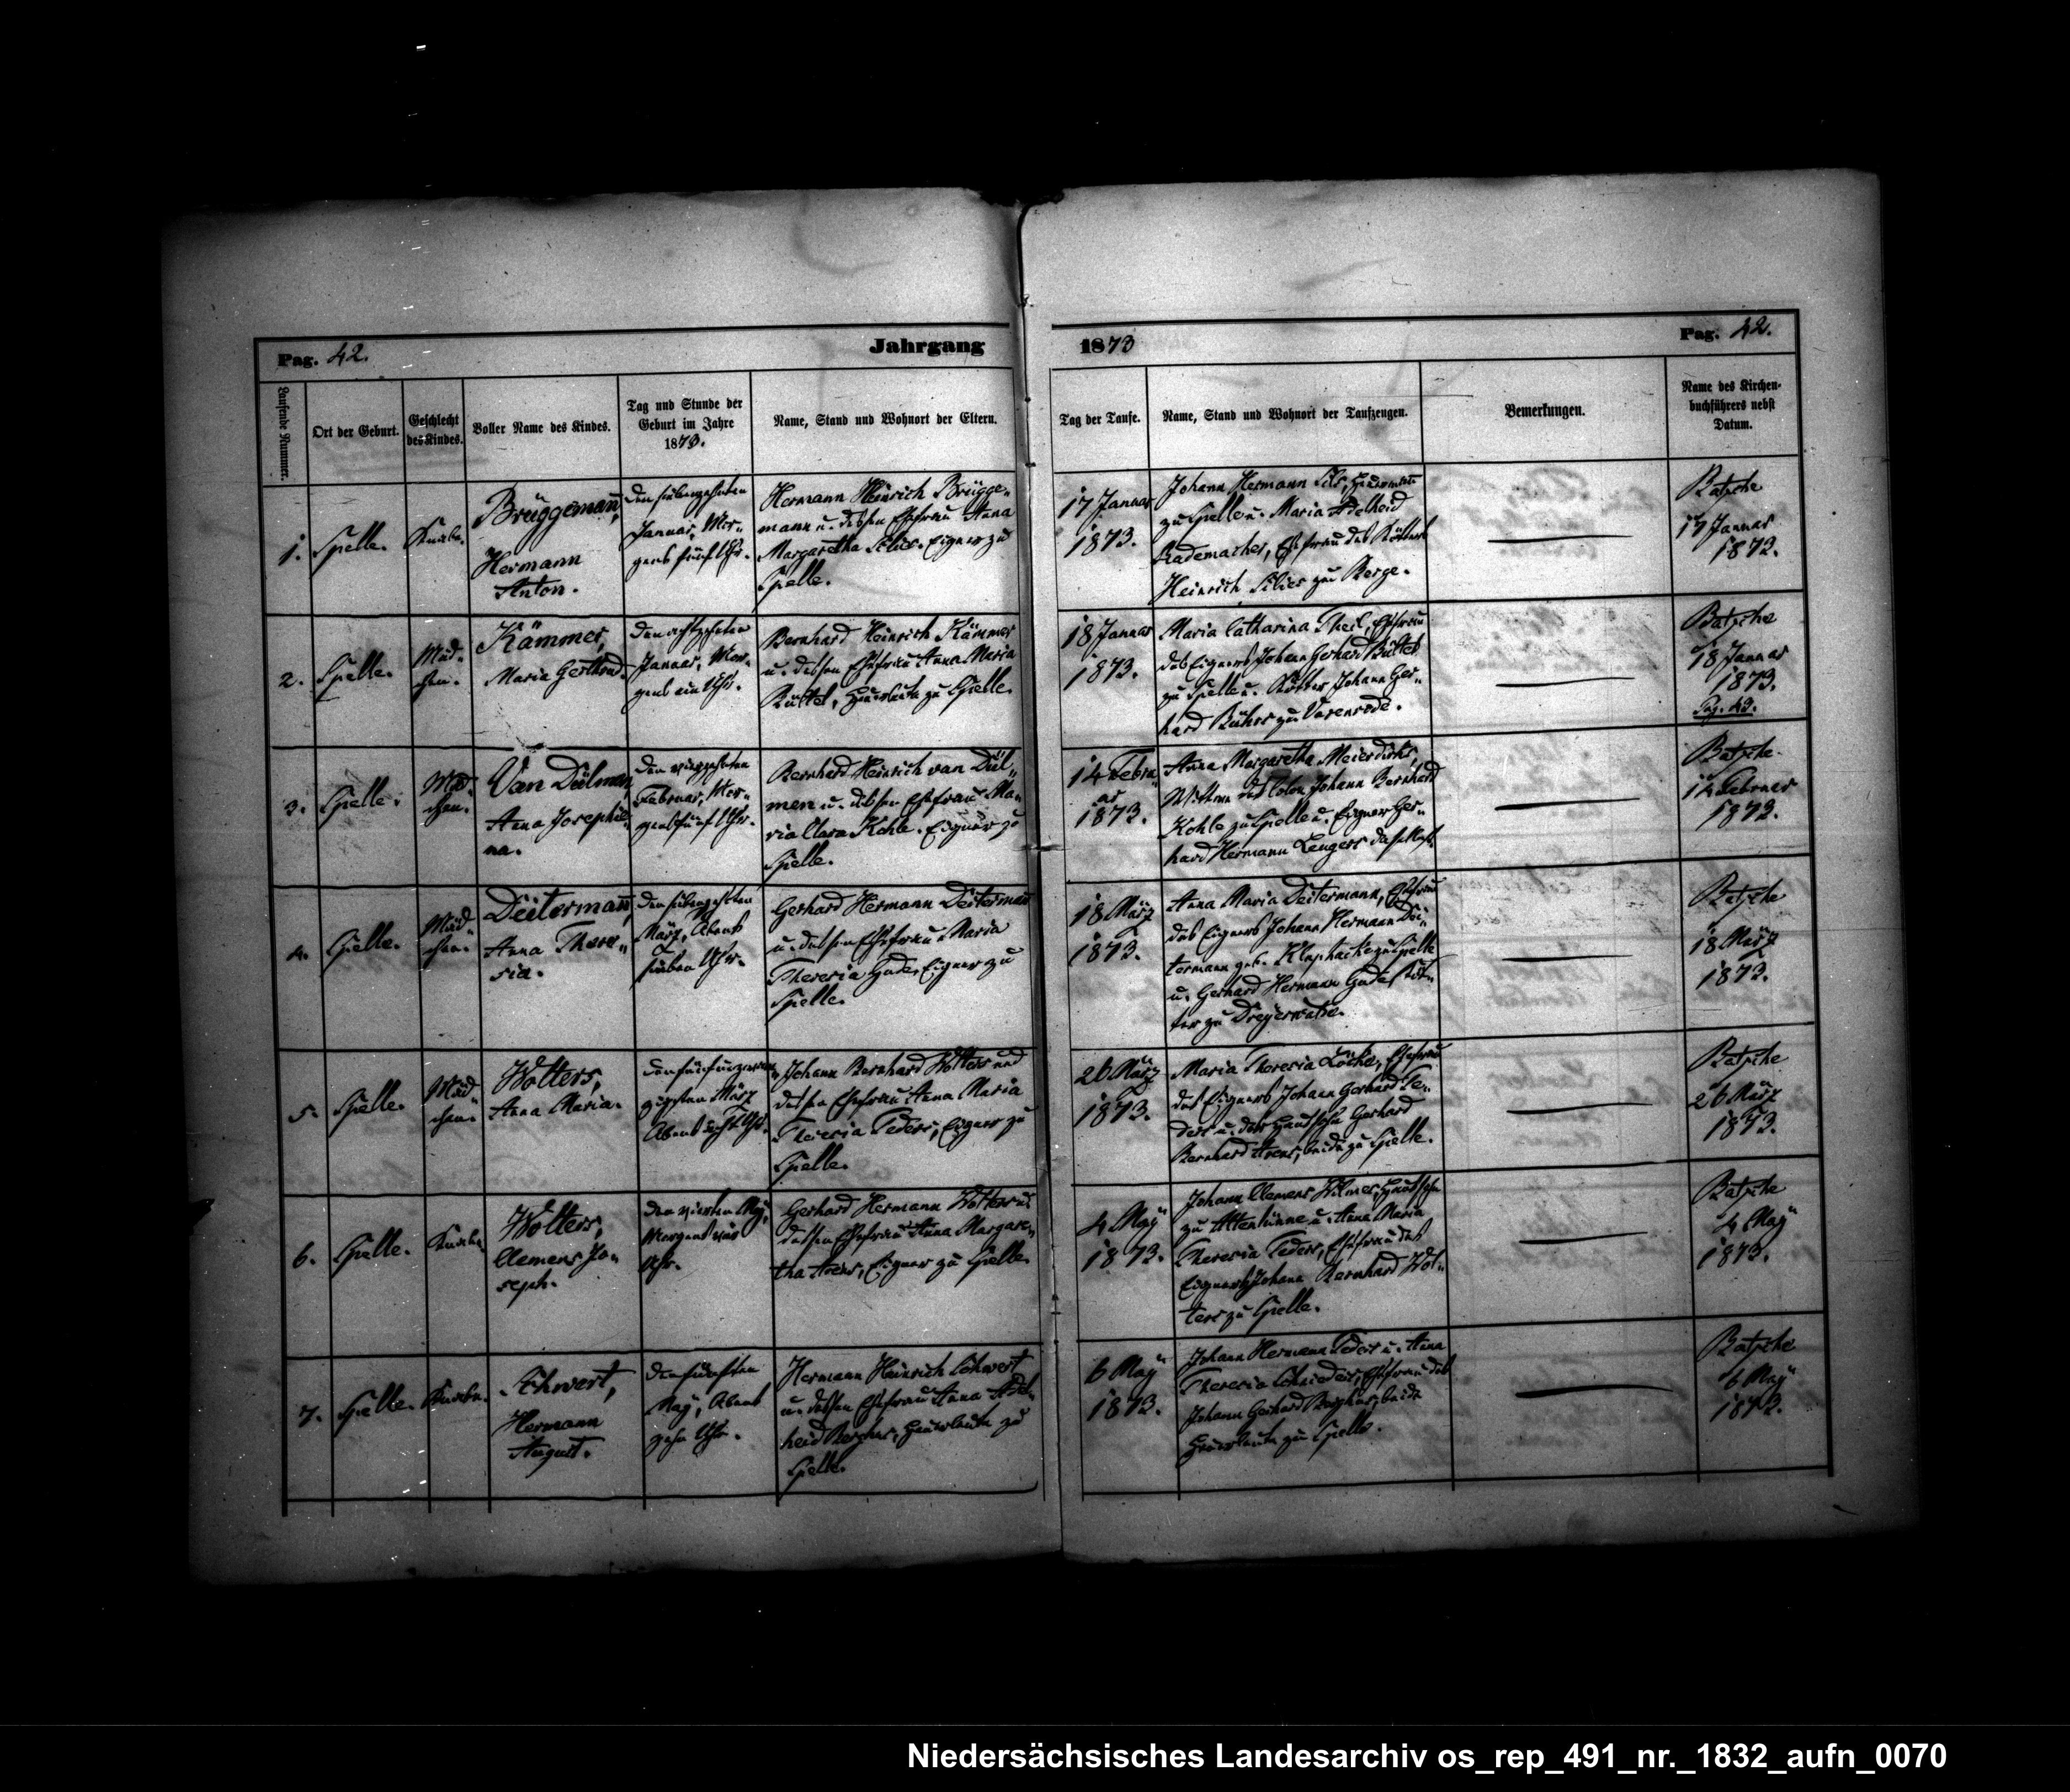 Pag. 42.
Jahrgang
1873
Pag. 42.
Laufende Nummer.
Ort der Geburt.
Geschlecht
des Kindes.
Voller Name des Kindes.
Tag und Stunde der
Geburt im Jahre
1873.
Name, Stand und Wohnort der Eltern.
Tag der Taufe.
Name, Stand und Wohnort der Taufzeugen.
Bemerkungen.
Name des Kirchen-
buchführers nebst
Datum.
1.
Spelle.
Knabe.
Brüggemann,
Hermann
Anton.
Den siebenzehnten
Januar, Mor-
gens fünf Uhr.
Hermann Heinrich Brügge-
mann u. dessen Ehefrau Anna
Margaretha Silies. Eigner zu
Spelle.
17 Januar
1873.
Johann Hermann Heuermann
zu Spelle u. Maria Adelheid
Rademacher, Ehefrau des Kötters
Heinrich Silies zu Berge.
Batsche
17 Januar
1873.
2.
Spelle.
Mäd-
chen.
Kämmer,
Maria Gertrud.
Den achtzehnten
Januar, Mor-
gens ein Uhr.
Bernhard Heinrich Kämmer
u. dessen Ehefrau Anna Maria
Büttel, Heuerleute zu Spelle.
18 Januar
1873.
Maria Catharina Theil, Ehefrau
des Eigners Johann Gerhard Büttel
zu Spelle u. Kötter Johann Ger-
hard zu Varenrode.
Batsche
18 Januar
1873.
3.
Spelle.
Mäd-
chen.
Van Dülmen,
Anna Josephi-
na.
Den vierzehnten
Februar, Mor-
gens fünf Uhr.
Bernhard Heinrich van Dül-
men u. dessen Ehefrau Ma-
ria Clara Kohle. Eigner zu
Spelle.
14 Febru-
ar
1873.
Anna Margaretha Meierdirks,
Wittwe des Colon Johann Bernhard
Kohle zu Spelle u. Eigner Ger-
hard Hermann Lengers daselbst.
Batsche
14 Februar
1873.
4.
Spelle.
Mäd-
chen.
Deitermann,
Anna There-
sia.
Den siebenzehnten
März, Abends
sieben Uhr.
Gerhard Hermann Deitermann
u. dessen Ehefrau Maria
Theresia Gude, Eigner zu
Spelle.
18 März
1873.
Anna Maria Deitermann, Ehefrau
des Eigners Johann Hermann Dei-
termann geb. zu Spelle
u. Gerhard Hermann Gude, Köt-
ter zu Dreyerwalde.
Batsche
18 März
1873.
5.
Spelle.
Mäd-
chen.
Wolters,
Anna Maria.
Den fünfundzwan-
zigsten März
Abends acht Uhr.
Johann Bernhard Wolters und
dessen Ehefrau Anna Maria
Theresia Feders, Eigner zu
Spelle.
26 März
1873.
Maria Theresia Löcke, Ehefrau
des Eigners Johann Gerhard Fe-
ders u. der Haussohn Gerhard
Bernhard Arens, beide zu Spelle.
Batsche
26 März
1873.
6.
Spelle.
Knabe.
Wolters,
Clemens Jo-
seph.
Den vierten May,
Morgens vier
Uhr.
Gerhard Hermann Wolters u.
dessen Ehefrau Anna Margare-
tha Arens, Eigner zu Spelle.
4 May
1873.
Johann Clemens Wilmes, Haussohn
zu Altenlünne u. Anna Maria
Theresia Feders, Ehefrau des
Eigners Johann Bernhard Wol-
ters zu Spelle.
Batsche
4 May
1873.
7.
Spelle.
Knabe.
Schwert,
Hermann
August.
Den fünften
May, Abends
zehn Uhr.
Hermann Heinrich Schwert
u. dessen Ehefrau Anna Adel-
heid Berghus, Heuerleute zu
Spelle.
6 May
1873.
Johann Hermann Feders u. Anna
Theresia Schnieders, Ehefrau des
Johann Gerhard Berghus, beide
Heuerleute zu Spelle.
Batsche
6 May
1873.
Niedersächsisches Landesarchiv os_rep_491_nr._1832_aufn_0070